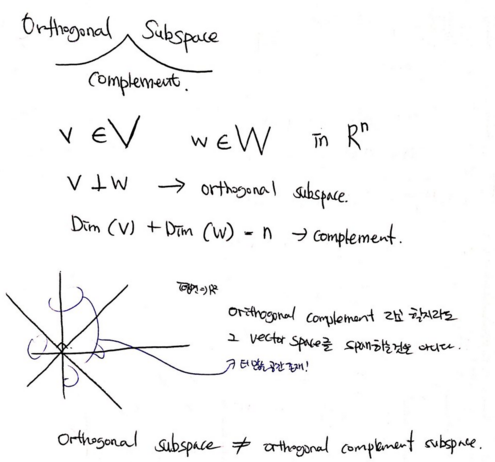 Orthogonal Subspace
Complement.
v ∈ V   w ∈ W   in Rⁿ
v ⊥ w → orthogonal subspace.
Dim (V) + Dim (W) = n → Complement.
R²
Orthogonal complement 라고 할지라도
그 vector space를 span하는것은 아니다.
더 많은 공간 존재!
Orthogonal subspace ≠ orthogonal complement subspace.